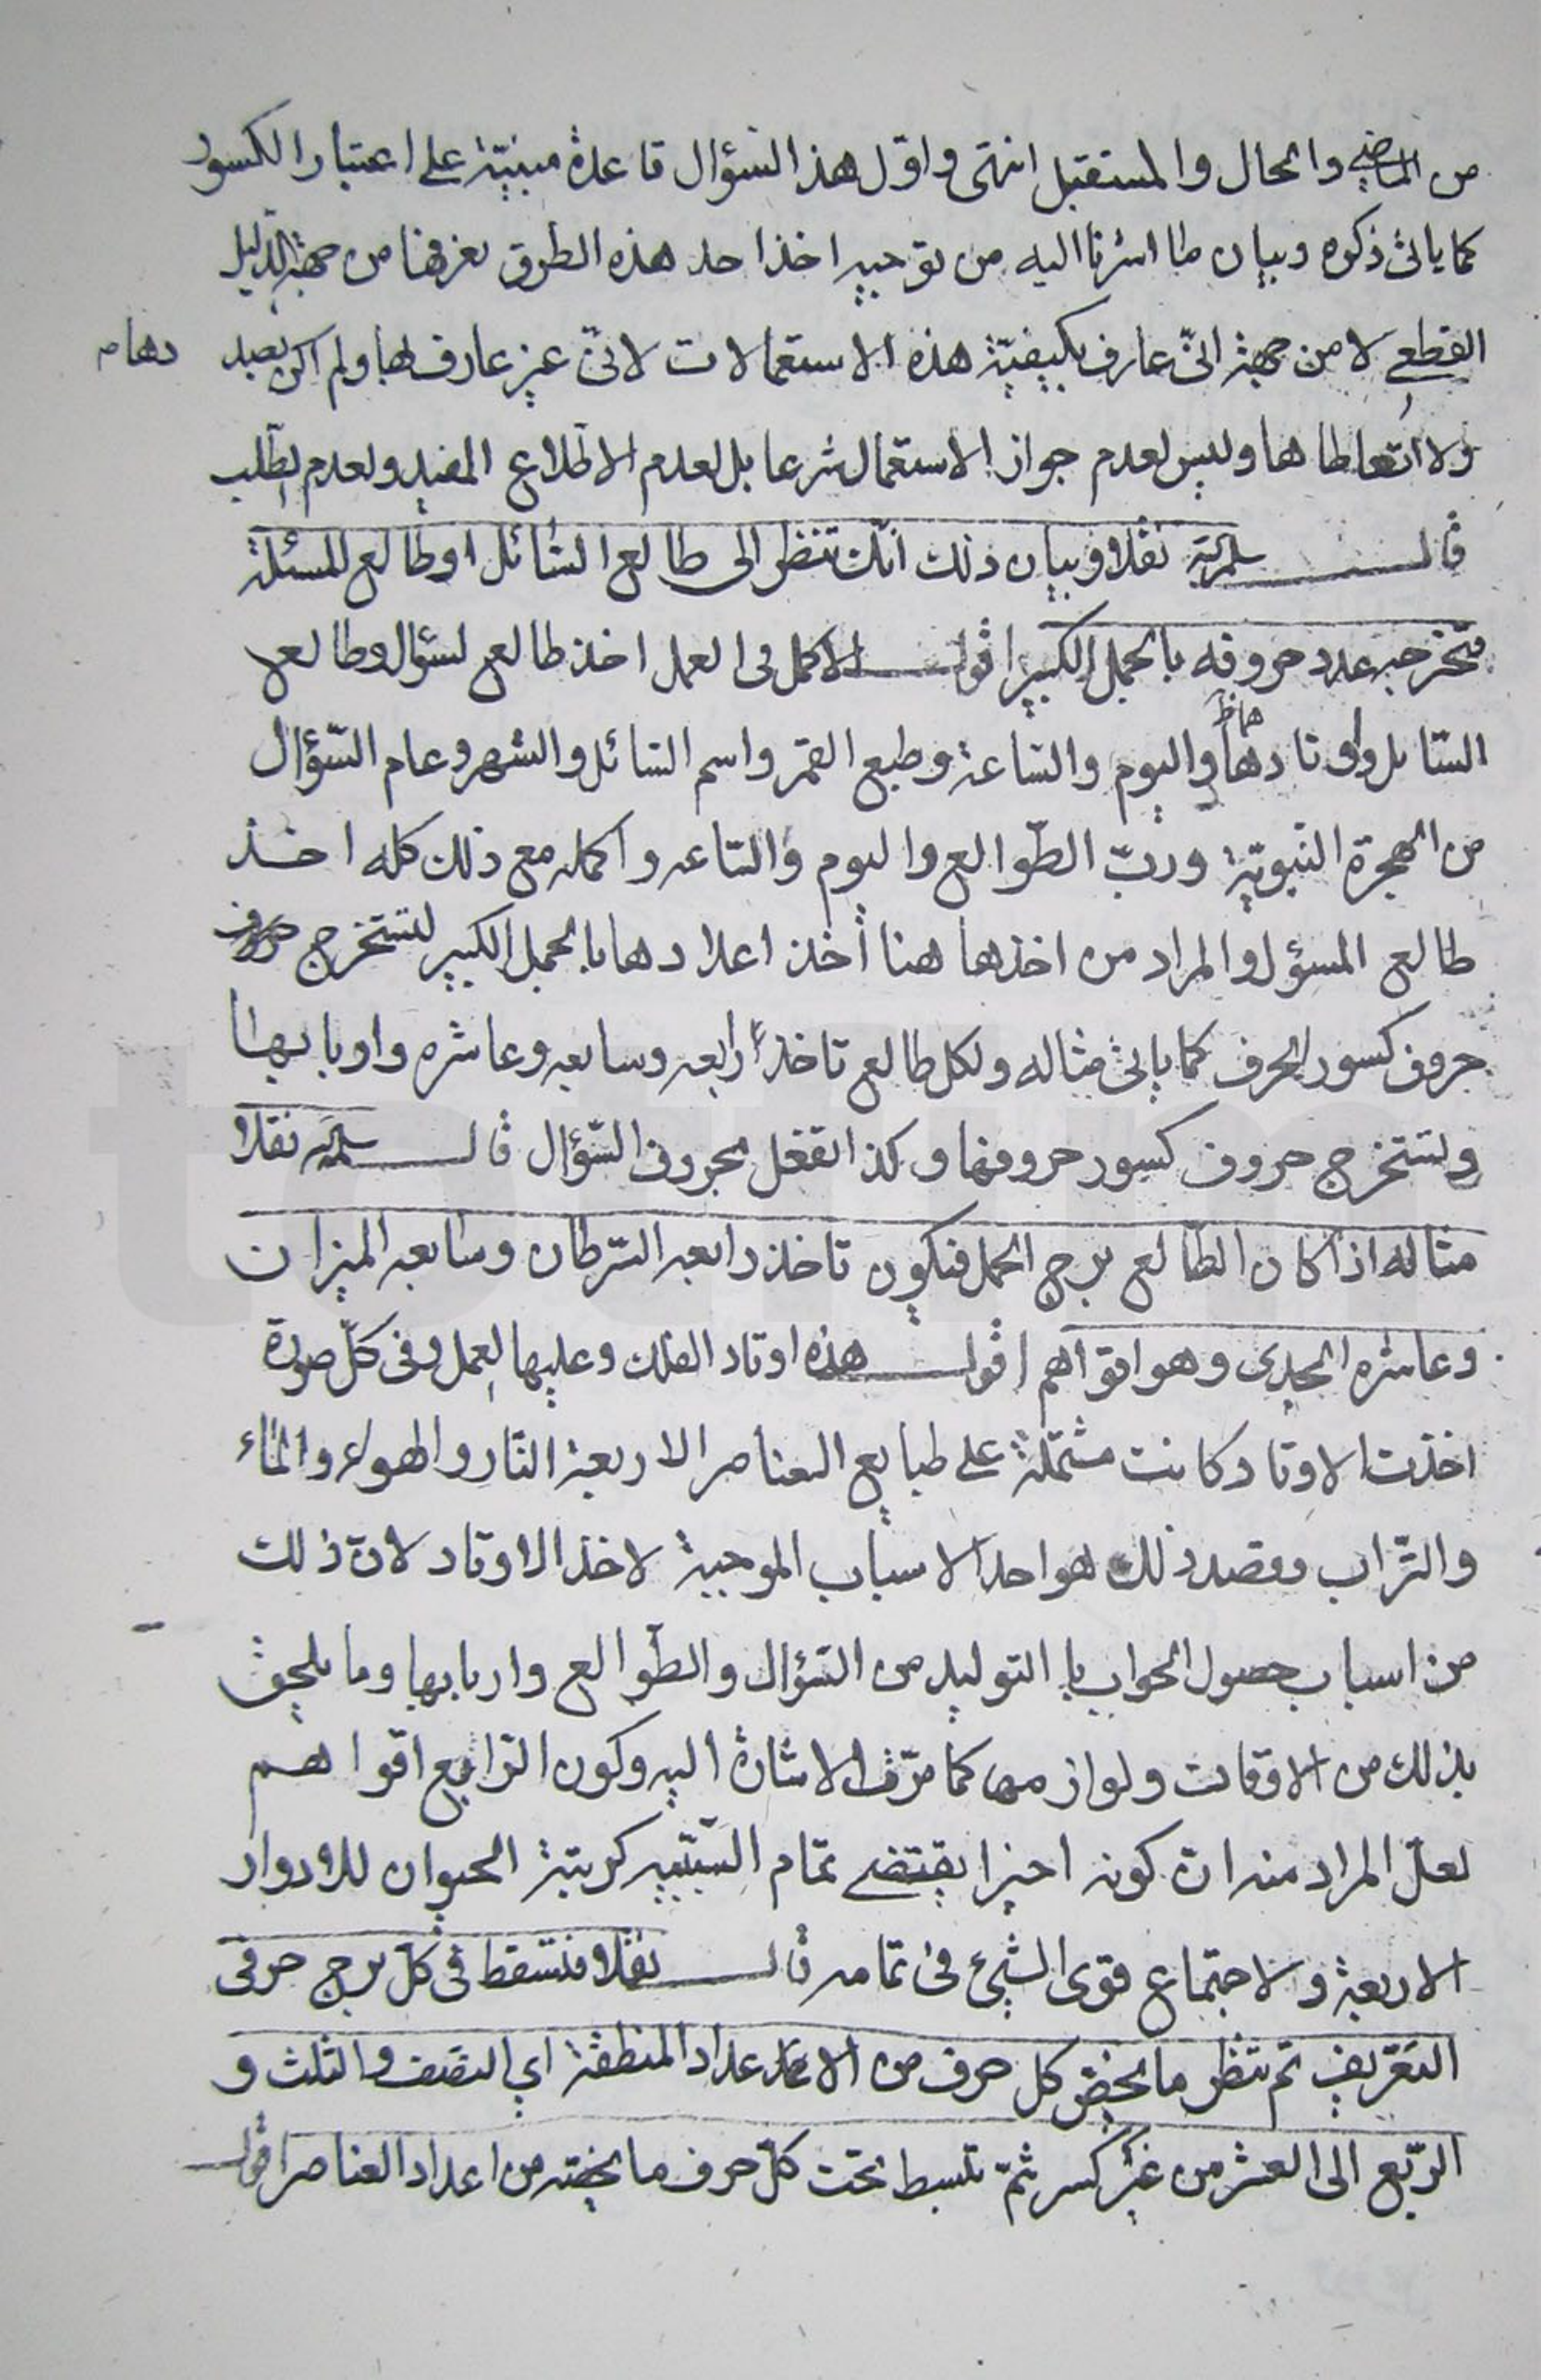 من الماضي والحال والمستقبل انتهى واقول هذا السؤال قاعدة مبنيّة على اعتبار الكسور
كما ياتى ذكره وبيان ما اشرنا اليه من توجيه اخذ احد هذه الطرق نعرفها من جهة الدليل
القطعي لا من جهة انّى عارف بكيفيّة هذه الاستعمالات لانّى غير عارف بها ولم اكن بصدد
دهامه
ولا اتعاطاها وليس لعدم جواز الاستعمال شرعا بل لعدم الاطلاع المفيد ولعدم الطّلب
قال سلمه الله نقلا وبيان ذلك انّك تنظر الى طالع السّائل او طالع المسئلة
فتخرج عدد حروفه بالجمل الكبير اقول الاكمل فى العمل اخذ طالع السؤال وطالع
السّائل واوتادهما واليوم والسّاعة وطبع القمر واسم السّائل والشهر وعام السّؤال
من الهجرة النّبويّة وربّ الطّوالع واليوم والسّاعه واكمله مع ذلك كله اخذ
طالع المسؤل والمراد من اخذها هنا أخذ اعدادها بالجمل الكبير لتستخرج
حروف كسور الحرف كما ياتى مثاله ولكل طالع تاخذ رابعه وسابعه وعاشره واربابها
وتستخرج حروف كسور حروفها وكذا تفعل بحروف السّؤال قال سلمه الله نقلا
مثاله اذا كان الطّالع برج الحمل فتكون تاخذ رابعه السّرطان وسابعه الميزان
وعاشره الجدى وهو اقواهم اقول هذه اوتاد الفلك وعليها العمل وفى كلّ صورة
اخذت الاوتاد كانت مشتملة على طبايع العناصر الاربعة النّار والهواء والماء
والتّراب وقصد ذلك هو احد الاسباب الموجبة لاخذ الاوتاد لانّ ذلك
من اسباب حصول الجواب بالتوليد من السّؤال والطّوالع واربابها وما يلحق
بذلك من الاوقات ولوازمها كما مرّت الاشارة اليه وكون الرّابع اقواهم
لعلّ المراد منه انّ كونه اخيرا يقتضي تمام السّببيّه كرتبة الحيوان للادوار
الاربعة ولاجتماع قوى الشيئ فى تمامه قال نقلا فتسقط فى كلّ برج حرفى
التعريف ثم تنظر ما يخصّ كل حرف من الاعداد المنطقة اي النّصف والثلث و
الرّبع الى العشر من غير كسر ثمّ تبسط تحت كلّ حرف ما يخصّه من اعداد العناصر اقول